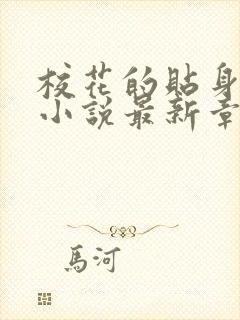 校花的貼身
小說最新章
馬河